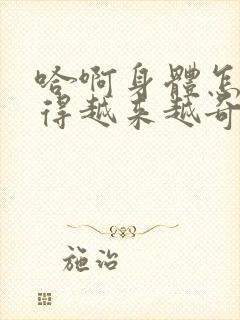 哈啊身體怎
得越来越奇
施治